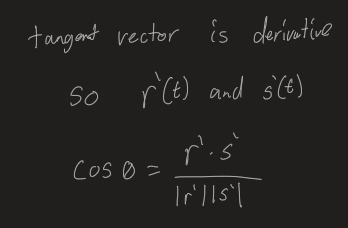 tangent vector is derivative
so r'(t) and s'(t)
cos θ = r' · s' / |r'||s'|